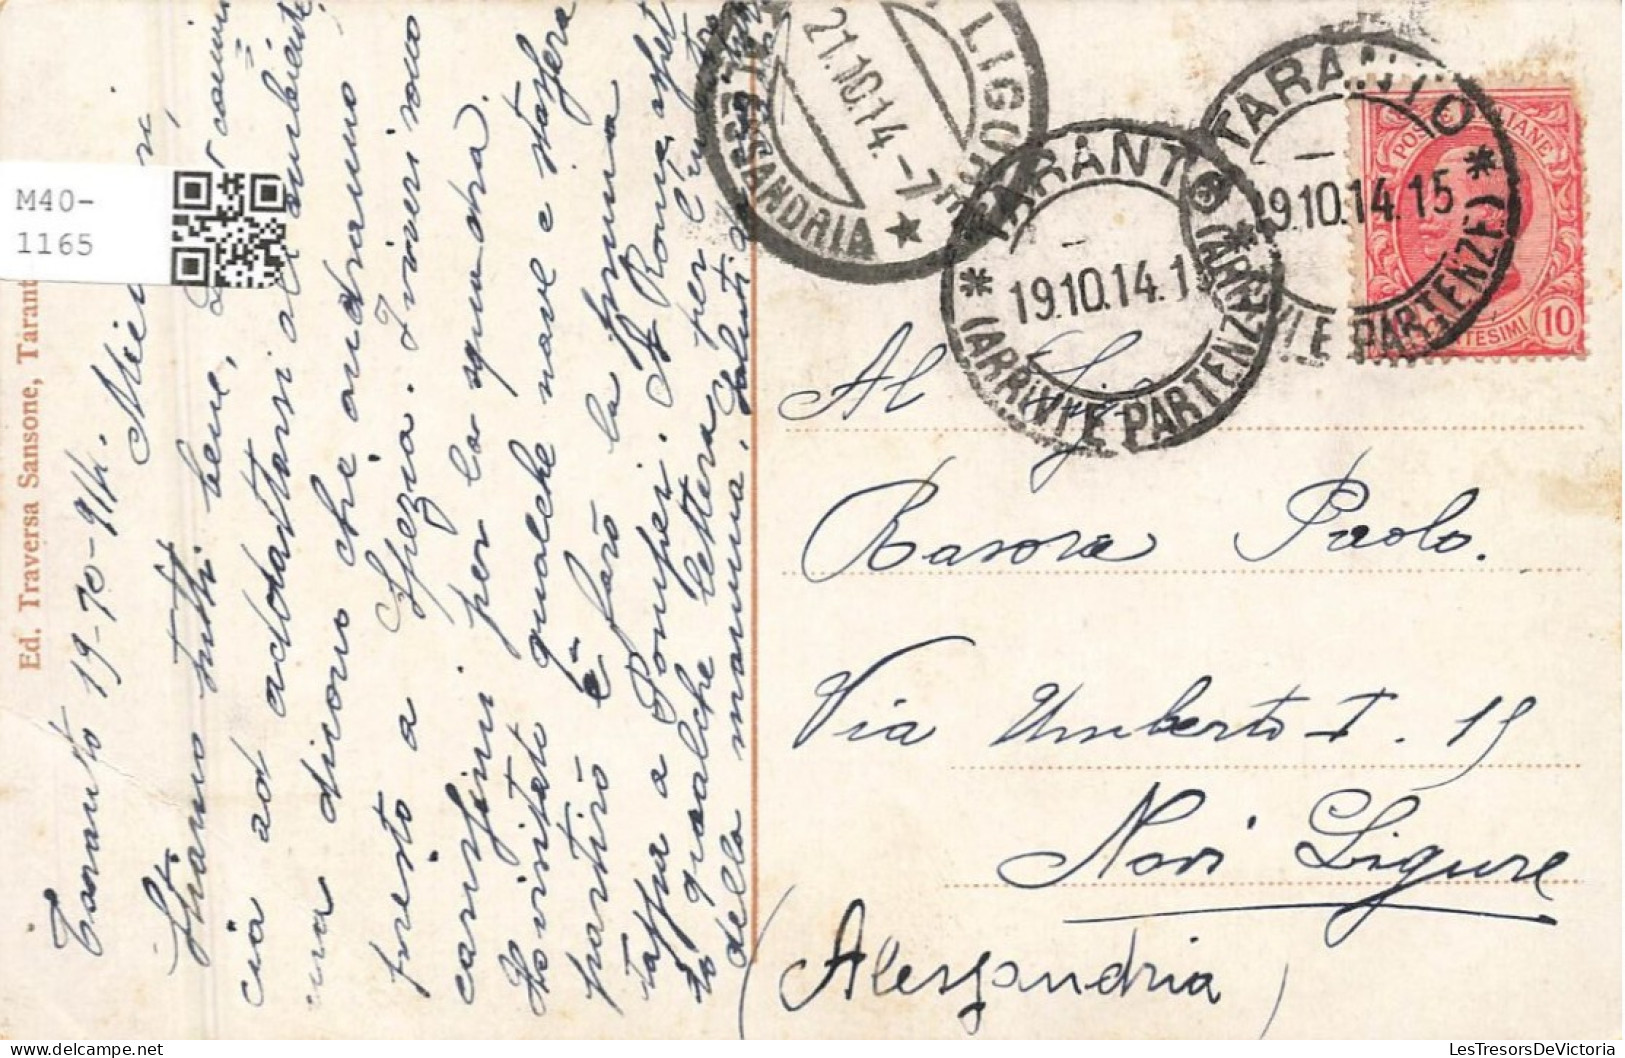 M40-
1165
Ed. Traversa Sansone, Tarant
Taranto 19-10-914. Miei
Stiamo tutti bene,
cia ad adattarsi all'ambiente
ma dicono che andranno
presto a Spezia. I viveri sono
carissimi per la squadra.
Ho visitato qualche nave e stasera
partirò e farò la prima
tappa a Pompei. A Roma aspet
to qualche lettera per l'
della mamma. Saluti a
ALESSANDRIA
21.10.14.-7
LIGURE
TARANTO
19.10.14.1
(ARRIVI E PARTENZE)
TARANTO
19.10.14.15
(ARRIVI E PARTENZE)
POSTE ITALIANE
CENTESIMI 10
Al Sig.
Rasora Paolo.
Via Umberto I. 15
Novi Ligure
(Alessandria)
LesTresorsDeVictoria